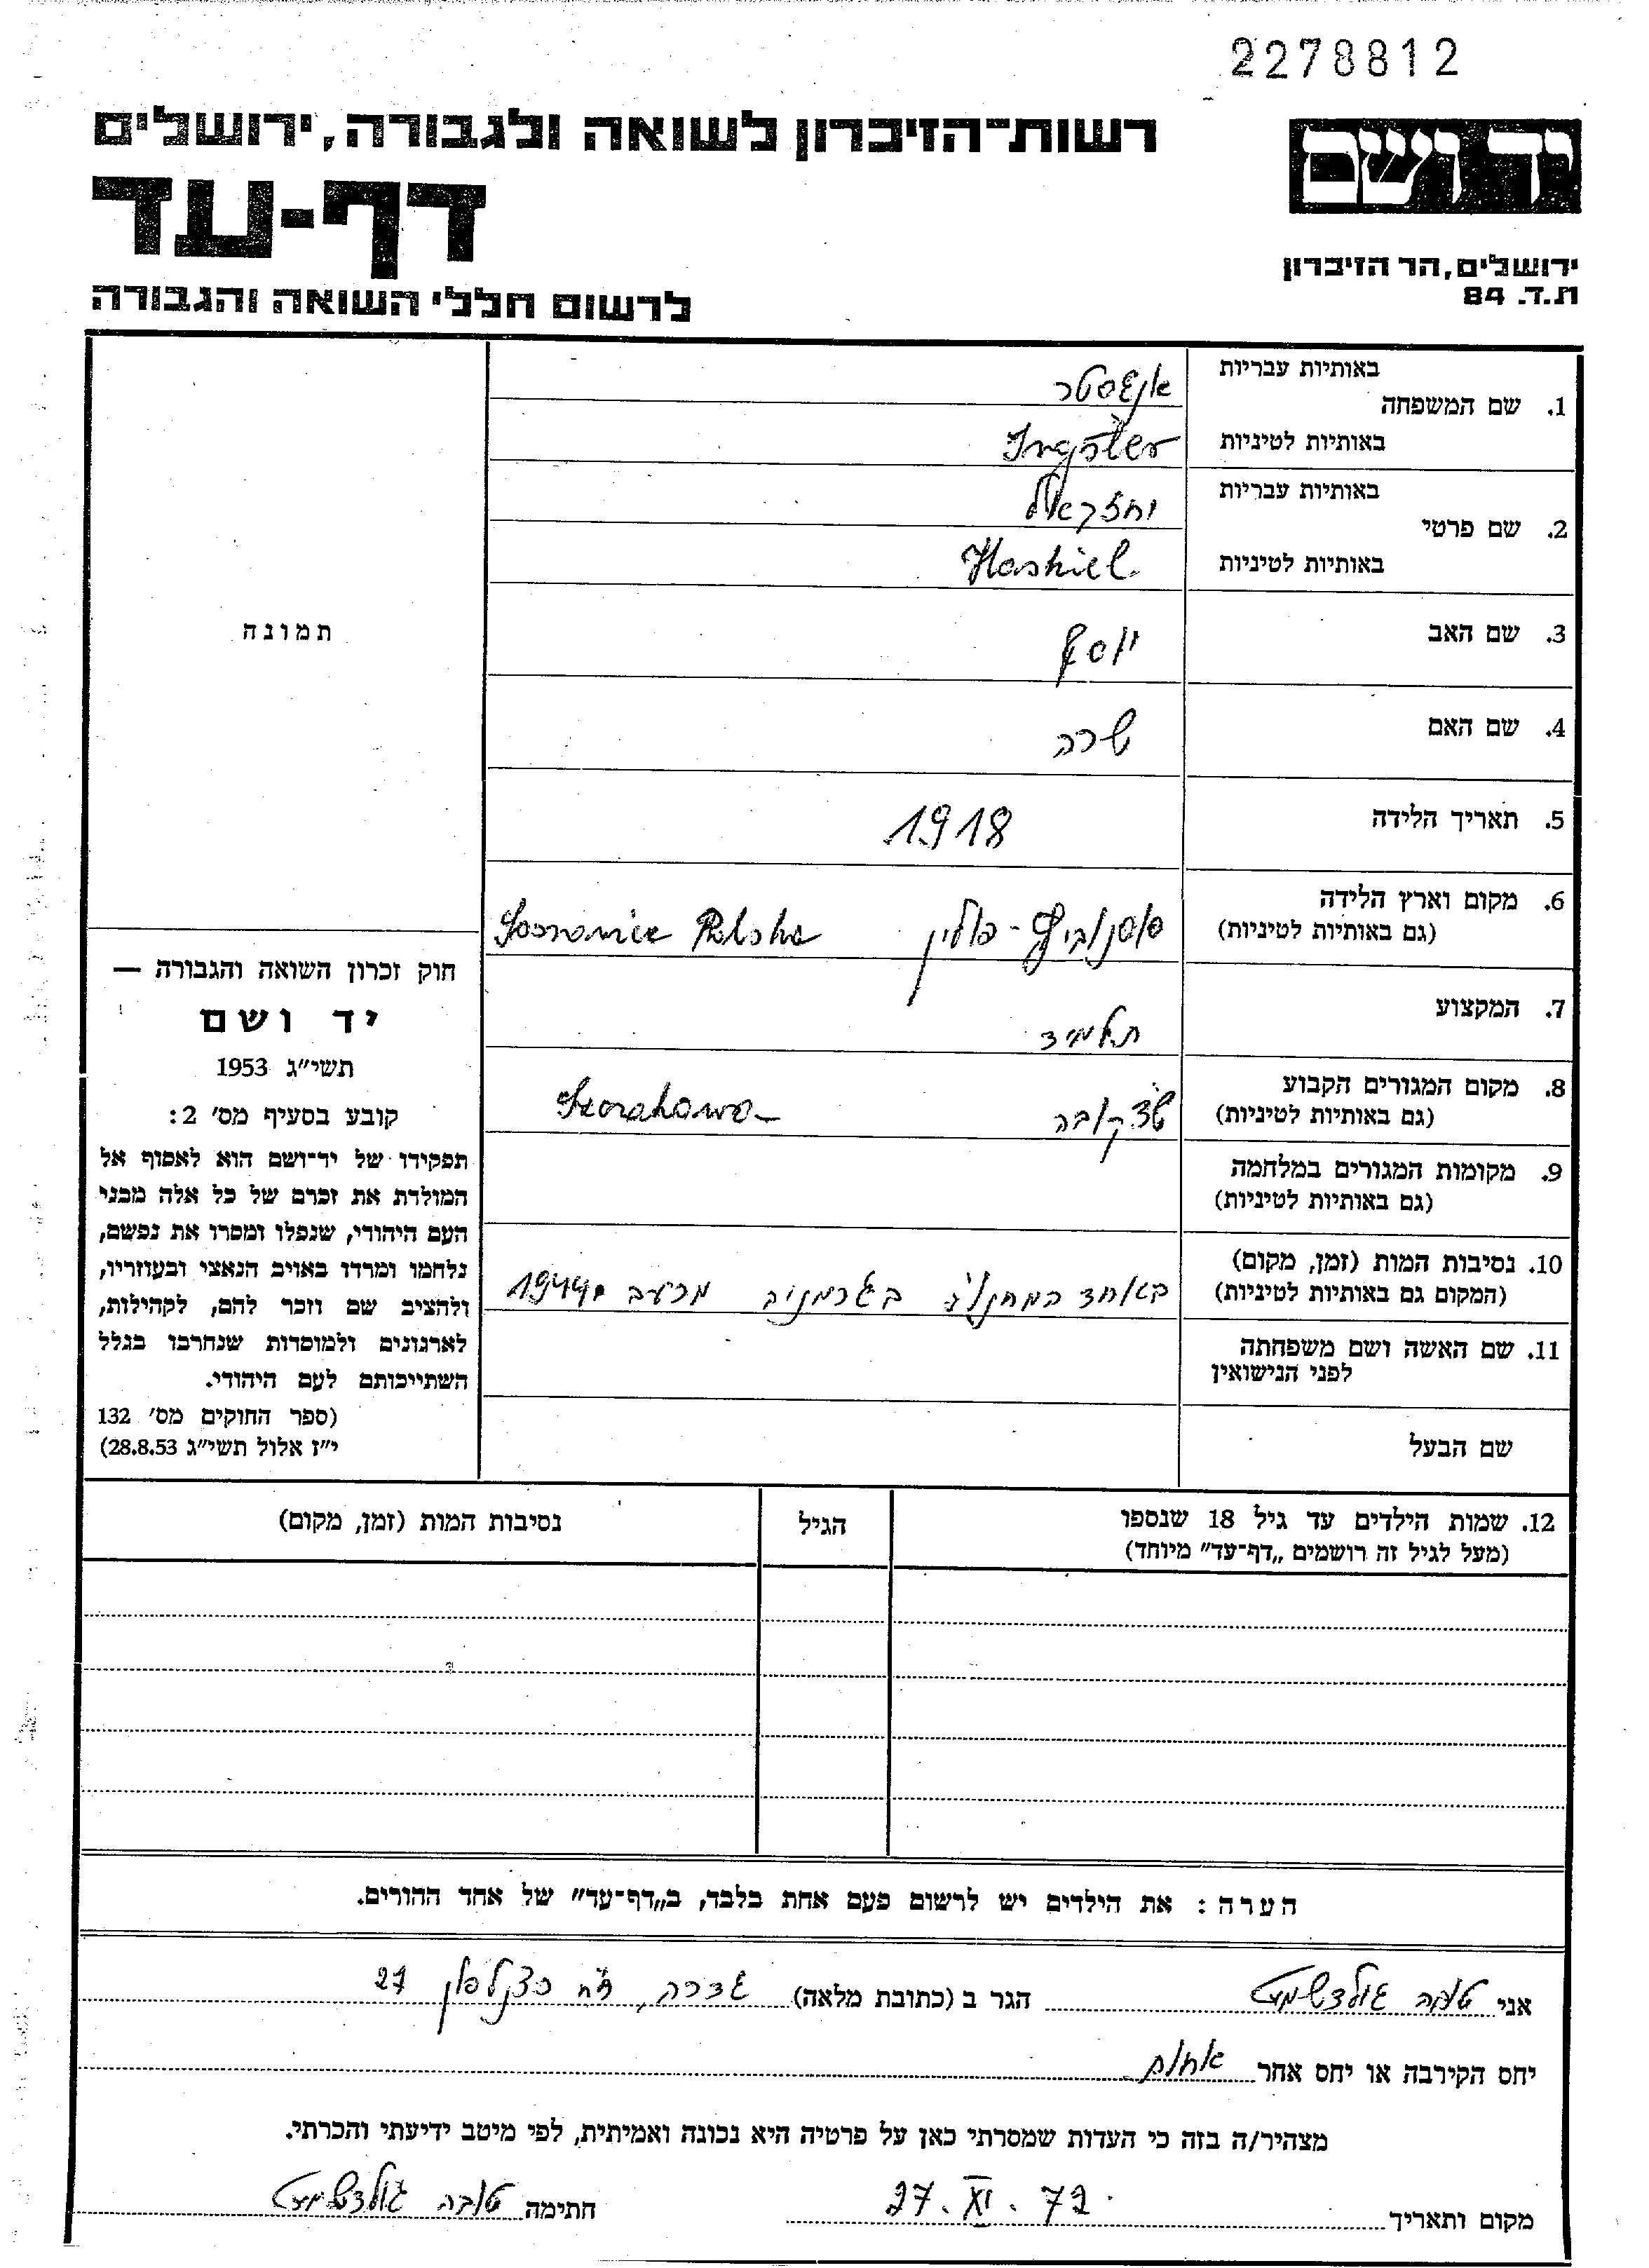 2278812
רשות־הזיכרון לשואה ולגבורה, ירושלים
יד ושם
דף-עד
ירושלים, הר הזיכרון
ת.ד. 84
לרשום חללי השואה והגבורה
באותיות עבריות
1. שם המשפחה
אנגסטר
באותיות לטיניות
Ingster
באותיות עבריות
2. שם פרטי
יחזקאל
באותיות לטיניות
Haskiel
3. שם האב
יוסף
4. שם האם
שרה
5. תאריך הלידה
1918
6. מקום וארץ הלידה
(גם באותיות לטיניות)
סוסנוביץ - פולין Sosnowice Polska
7. המקצוע
תלמיד
8. מקום המגורים הקבוע
(גם באותיות לטיניות)
9. מקומות המגורים במלחמה
(גם באותיות לטיניות)
10. נסיבות המות (זמן, מקום)
(המקום גם באותיות לטיניות)
באחד המחנות בגרמניה מרעב 1944
11. שם האשה ושם משפחתה
לפני הנישואין
שם הבעל
תמונה
חוק זכרון השואה והגבורה —
יד ושם
תשי״ג 1953
קובע בסעיף מס׳ 2:
תפקידו של יד־ושם הוא לאסוף אל
המולדת את זכרם של כל אלה מבני
העם היהודי, שנפלו ומסרו את נפשם,
נלחמו ומרדו באויב הנאצי ובעוזריו,
ולהציב שם וזכר להם, לקהילות,
לארגונים ולמוסדות שנחרבו בגלל
השתייכותם לעם היהודי.
(ספר החוקים מס׳ 132
י״ז אלול תשי״ג 28.8.53)
12. שמות הילדים עד גיל 18 שנספו
(מעל לגיל זה רושמים „דף־עד״ מיוחד)
הגיל
נסיבות המות (זמן, מקום)
הערה: את הילדים יש לרשום פעם אחת בלבד, ב„דף־עד״ של אחד ההורים.
אני טובה גולדשמיט הגר ב (כתובת מלאה) גדרה, רח׳ כצנלסון 27
יחס הקירבה או יחס אחר אחות
מצהיר/ה בזה כי העדות שמסרתי כאן על פרטיה היא נכונה ואמיתית, לפי מיטב ידיעתי והכרתי.
מקום ותאריך 27. XI. 72. חתימה טובה גולדשמיט